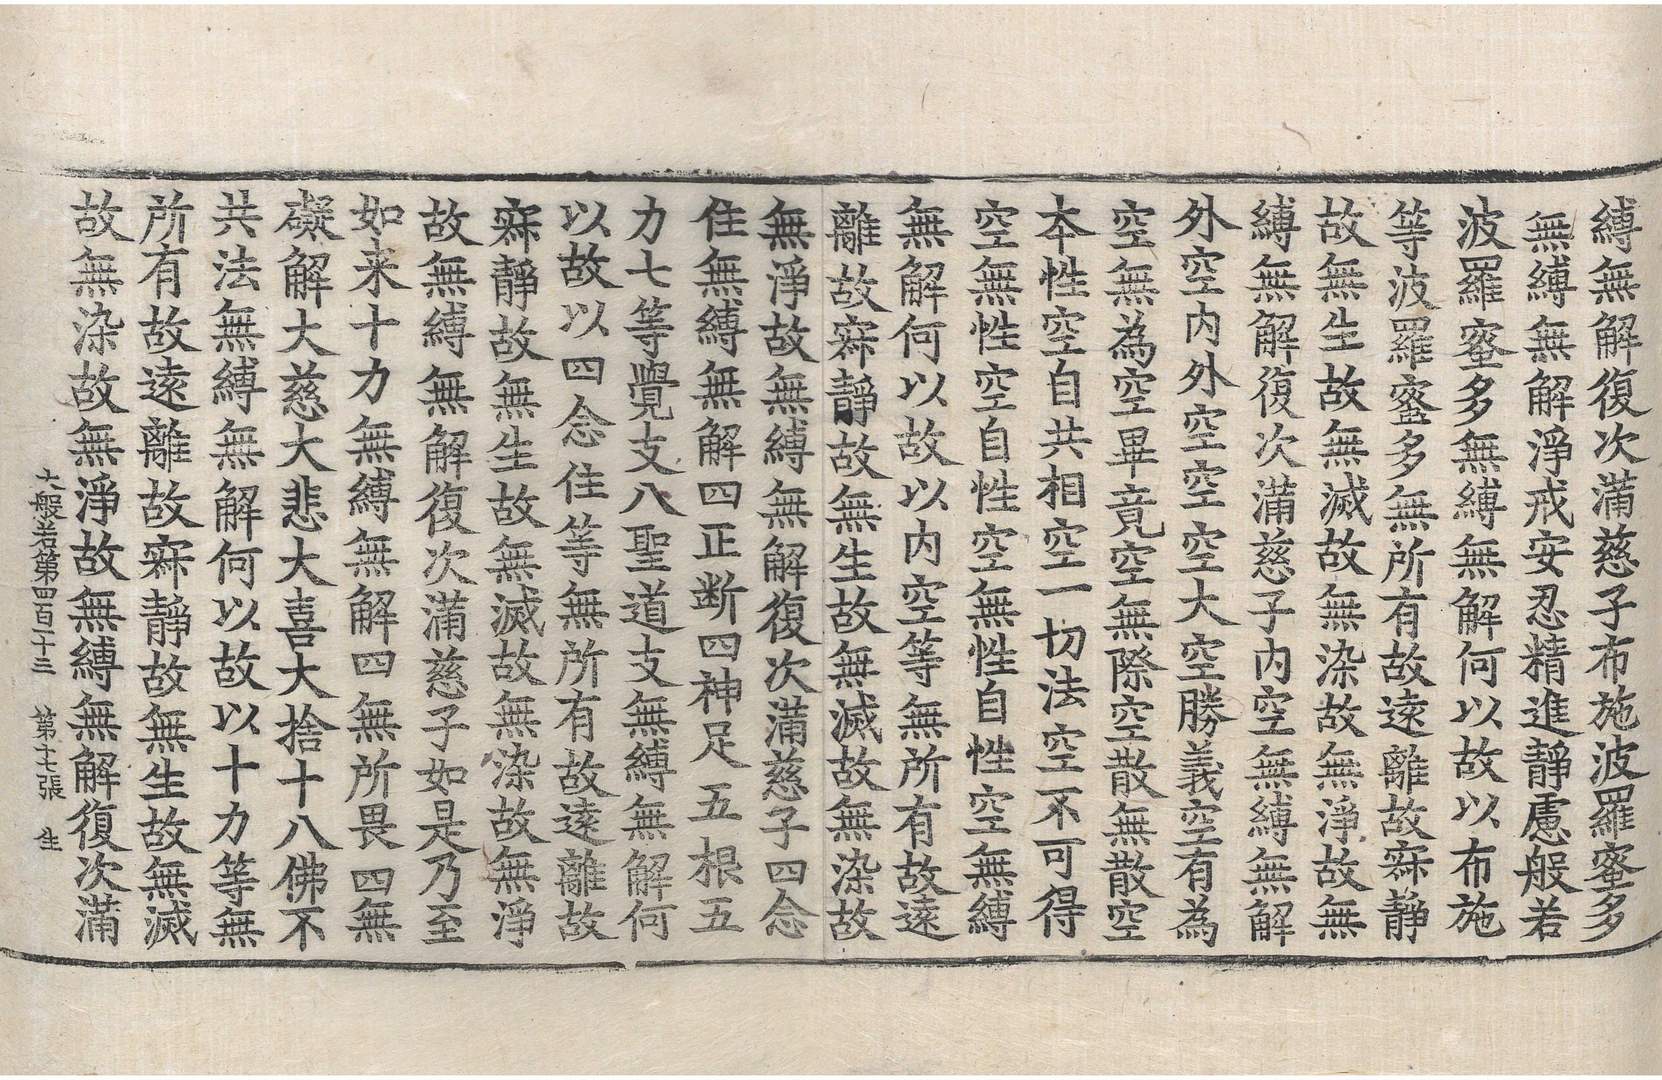 縛無解復次滿慈子布施波羅蜜多
無縛無解淨戒安忍精進靜慮般若
波羅蜜多無縛無解何以故以布施
等波羅蜜多無所有故遠離故寂靜
故無生故無滅故無染故無淨故無
縛無解復次滿慈子內空無縛無解
外空內外空空空大空勝義空有為
空無為空畢竟空無際空散無散空
本性空自共相空一切法空不可得
空無性空自性空無性自性空無縛
無解何以故以內空等無所有故遠
離故寂靜故無生故無滅故無染故
無淨故無縛無解復次滿慈子四念
住無縛無解四正断四神足五根五
力七等覺支八聖道支無縛無解何
以故以四念住等無所有故遠離故
寂靜故無生故無滅故無染故無淨
故無縛無解復次滿慈子如是乃至
如来十力無縛無解四無所畏四無
礙解大慈大悲大喜大捨十八佛不
共法無縛無解何以故以十力等無
所有故遠離故寂靜故無生故無滅
故無染故無淨故無縛無解復次滿
大般若第四百十三 第十七張 生